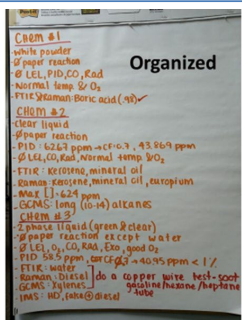 Organized
CHEM #1
-white powder
-Ø paper reaction
-Ø LEL, PID, CO, Rad
-Normal temp & O₂
-FTIR & Raman: Boric acid (.98)✓
CHEM #2
-clear liquid
-Ø paper reaction
-PID: 62.67 ppm → CF=0.7, 43.869 ppm
-Ø LEL, CO, Rad, Normal temp & O₂
-FTIR: Kerosene, mineral oil
-Raman: Kerosene, mineral oil, europium
-Max [ ] = 624 ppm
-GCMS: long (10-14) alkanes
CHEM #3
-2 phase liquid (green & clear)
-Ø paper reaction except water
-Ø LEL, O₂, CO, Rad, Exo, good O₂
-PID 58.5 ppm, CF 0.7 → 40.95 ppm < 1%
-FTIR: water
-Raman: Diesel } do a copper wire test-soot
-GCMS: Xylenes gasoline/hexane/heptane
-IMS: HD, false ⊕ diesel tube